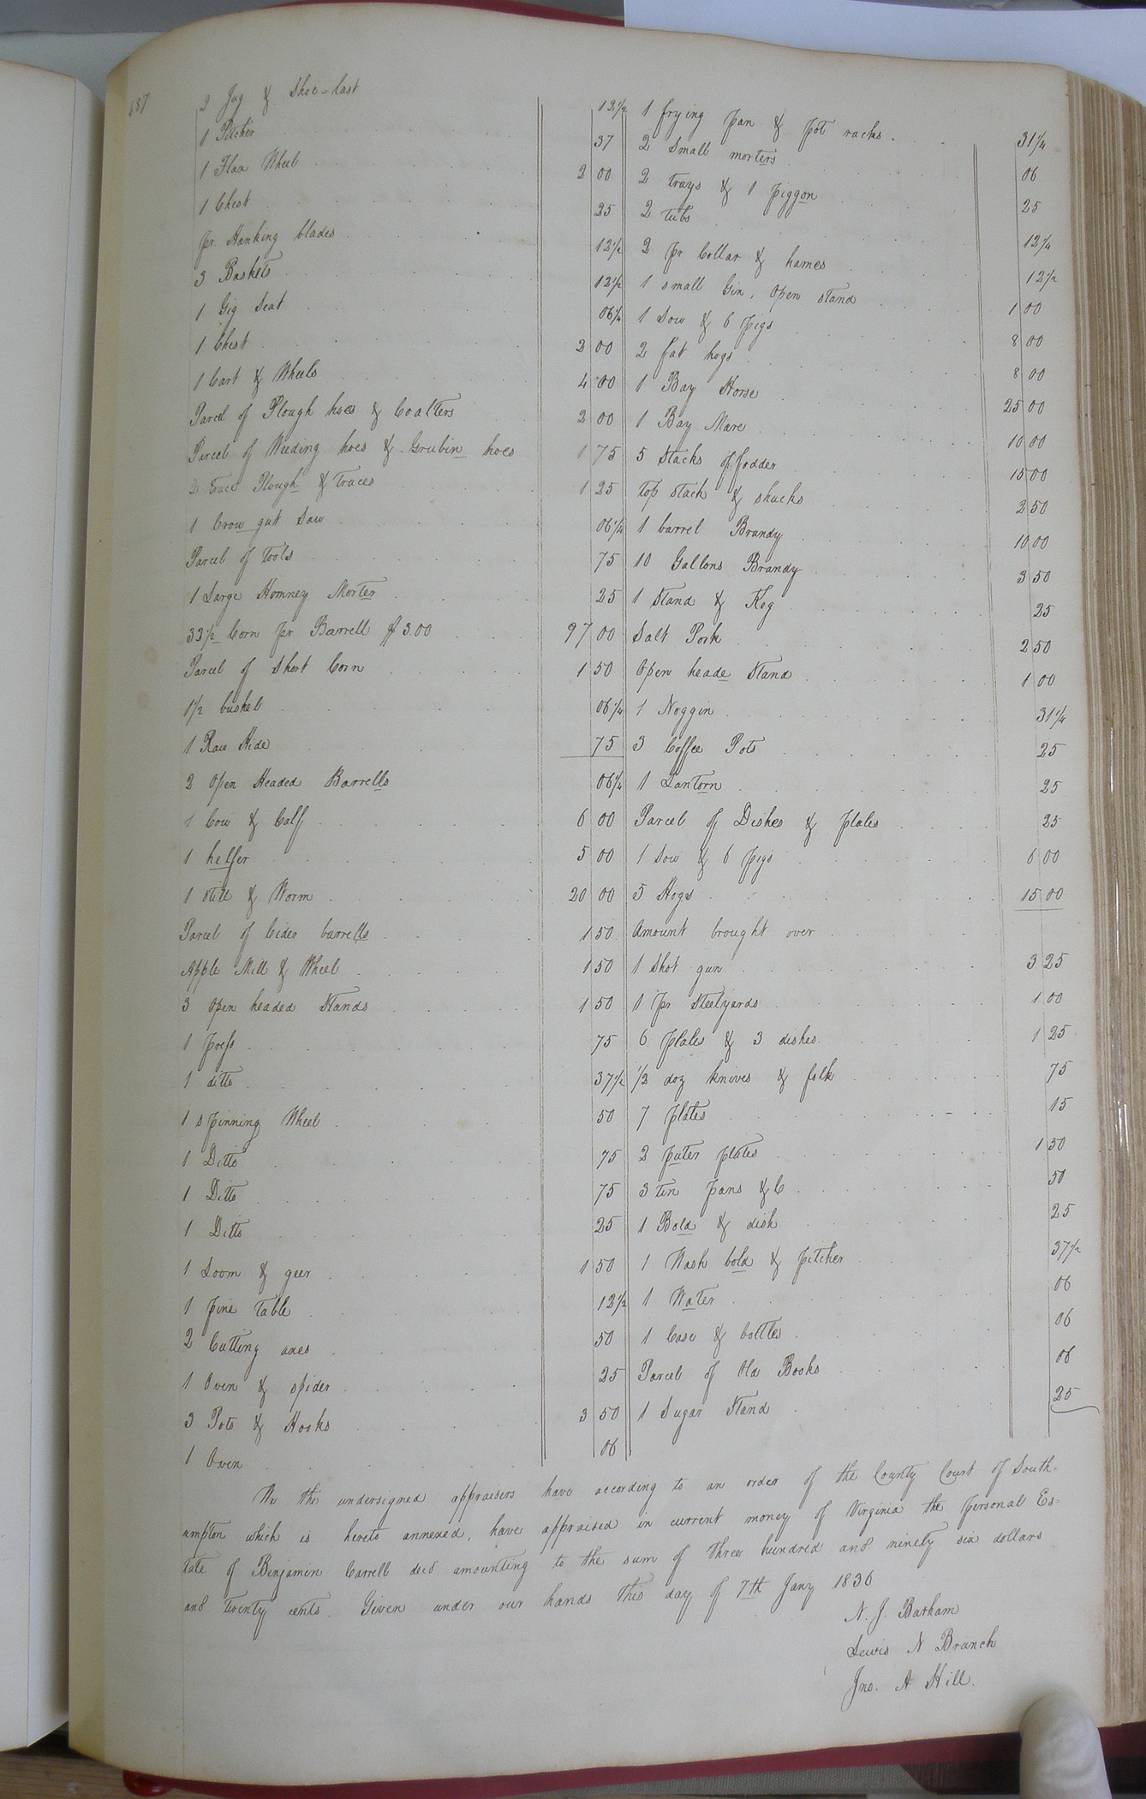 2 Jug & Shoe-last 12½
1 Pitcher 37
1 Flax Wheel 2 00
1 Chest 25
pr. Hanking blades 12½
3 Baskets 12½
1 Gig Seat 06¼
1 Chest 2 00
1 Cart & Wheels 4 00
Parcel of Plough hoes & Coalters 2 00
Parcel of Weeding hoes & Grubin hoes 1 75
2 Trace Plough & Traces 1 25
1 Crow gut Saw 06¼
Parcel of Tools 75
1 Large Homney Morter 25
33⅓ Corn pr Barrell $3.00 97 00
Parcel of Short Corn 1 50
1½ bushel 06¼
1 Raw Hide 75
2 Open Headed Barrells 06¼
1 Cow & Calf 6 00
1 helfer 5 00
1 Still & Worm 20 00
Parcel of Cider barrells 1 50
Apple Mill & Wheel 1 50
3 Open headed Stands 1 50
1 press 75
1 ditto 37½
1 Spinning Wheel 50
1 Ditto 75
1 Ditto 75
1 Ditto 25
1 Loom & geer 1 50
1 pine Table 12½
2 Cutting axes 50
1 Oven & spider 25
3 Pots & Hooks 3 50
1 Oven 06
1 frying pan & pot racks 31¼
2 Small morters 06
2 trays & 1 piggon 25
2 tubs 12¼
2 pr Collar & hames 12½
1 small Gin, Open stand 1 00
1 Sow & 6 pigs 8 00
2 fat hogs 8 00
1 Bay Horse 25 00
1 Bay Mare 10 00
5 Stacks of fodder 15 00
Top stack & shucks 2 50
1 barrel Brandy 10 00
10 Gallons Brandy 3 50
1 Stand & Keg 25
Salt Pork 2 50
Open heade Stand 1 00
1 Noggin 31¼
3 Coffee Pots 25
1 Lantorn 25
Parcel of Dishes & plates 25
1 Sow & 6 pigs 6 00
5 Hogs 15 00
Amount brought over
1 Shot gun 3 25
1 pr Steelyards 1 00
6 plates & 3 dishes 1 25
½ doz knives & folk 75
7 plates 15
2 puter plates 1 50
3 tin pans &C 50
1 Bold & dish 25
1 Wash bold & pitcher 37½
1 Water 06
1 Case & bottles 06
Parcel of Old Books 06
1 Sugar Stand 25
We the undersigned appraisers have according to an order of the County Court of South-
ampton which is hereto annexed, have appraised in current money of Virginia the personal Es-
tate of Benjamin Carrell decd amounting to the sum of three hundred and ninety six dollars
and twenty cents. Given under our hands this day of 7th Jany 1836
N. J. Barham
Lewis N Branch
Jno. A Hill.